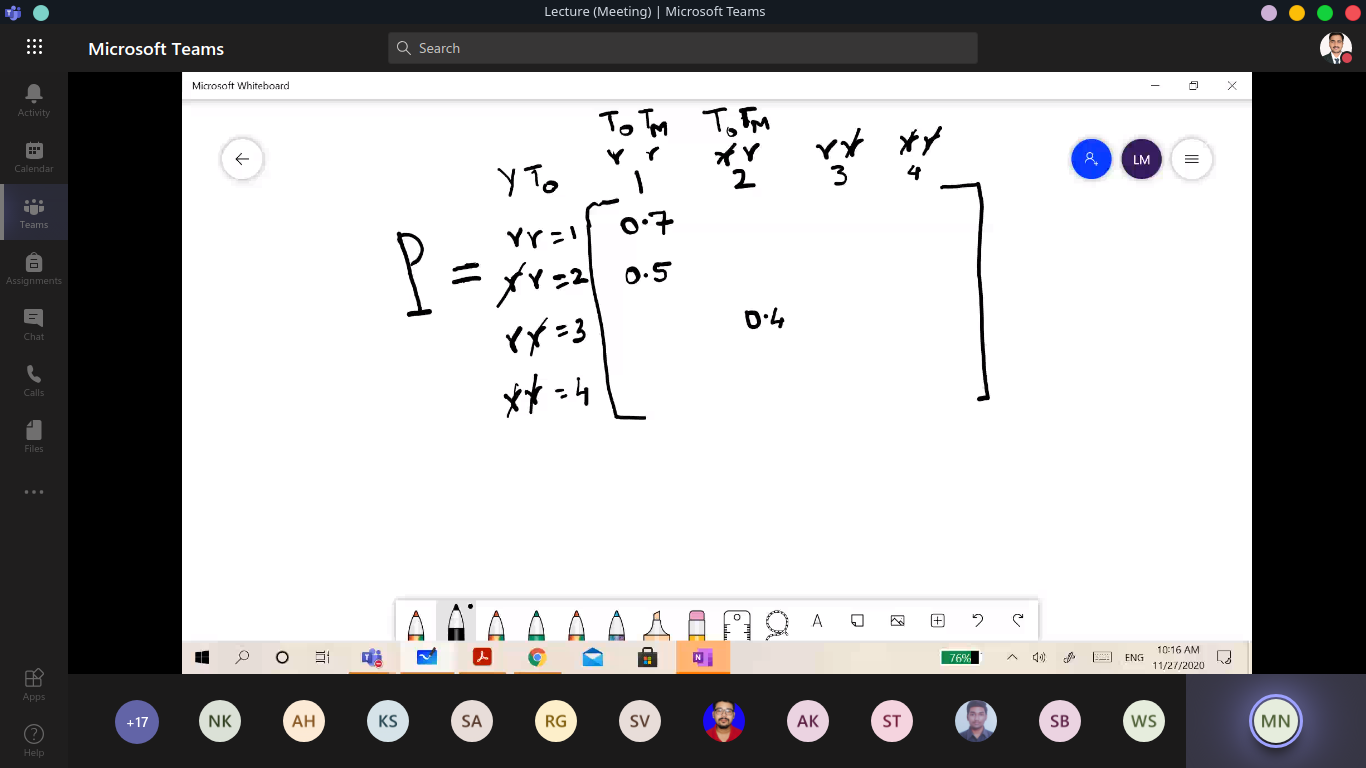 Lecture (Meeting) | Microsoft Teams
Microsoft Teams
Search
Activity
Calendar
Teams
Assignments
Chat
Calls
Files
Apps
Help
Microsoft Whiteboard
LM
To TM To TM
r r r̸ r r r̸ r̸ r̸
Y To 1 2 3 4
P =
r r = 1 0.7
r̸ r = 2 0.5
r r̸ = 3 0.4
r̸ r̸ = 4
A
76%
ENG
10:16 AM
11/27/2020
+17 NK AH KS SA RG SV AK ST SB WS MN